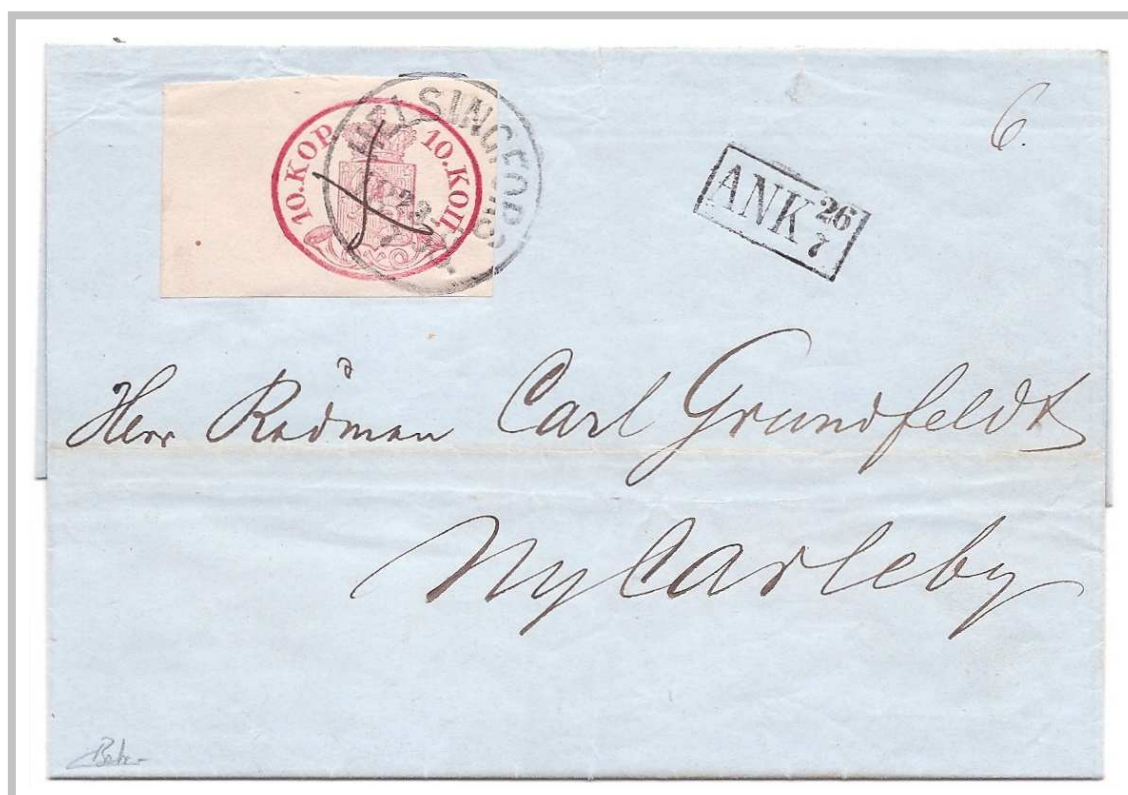 10.KOP 10.КОП.
HELSINGFORS
6.
ANK 26
7
Herr Rådman Carl Grundfeldt
NyCarleby